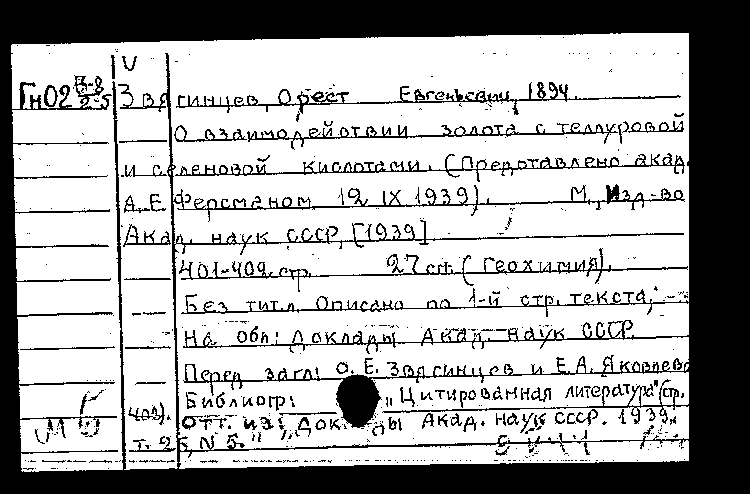 V
Гн02 З-8/2-5 Звягинцев, Орест Евгеньевич, 1894.
О взаимодействии золота с теллуровой
и селеновой кислотами. (Представлено акад.
А.Е. Ферсманом 19 IX 1939). М., Изд-во
Акад. наук СССР, [1939]
401-402 стр. 27 см. (Геохимия).
Без тит.л. Описано по 1-й стр. текста;
На обл: Доклады Акад. наук СССР.
Перед загл: О.Е. Звягинцев и Е.А. Яковлева
Библиогр: „Цитированная литература" (стр.
402).
Отт. из: „Доклады Акад. наук СССР. 1939,
т. 25, N 5."
м б